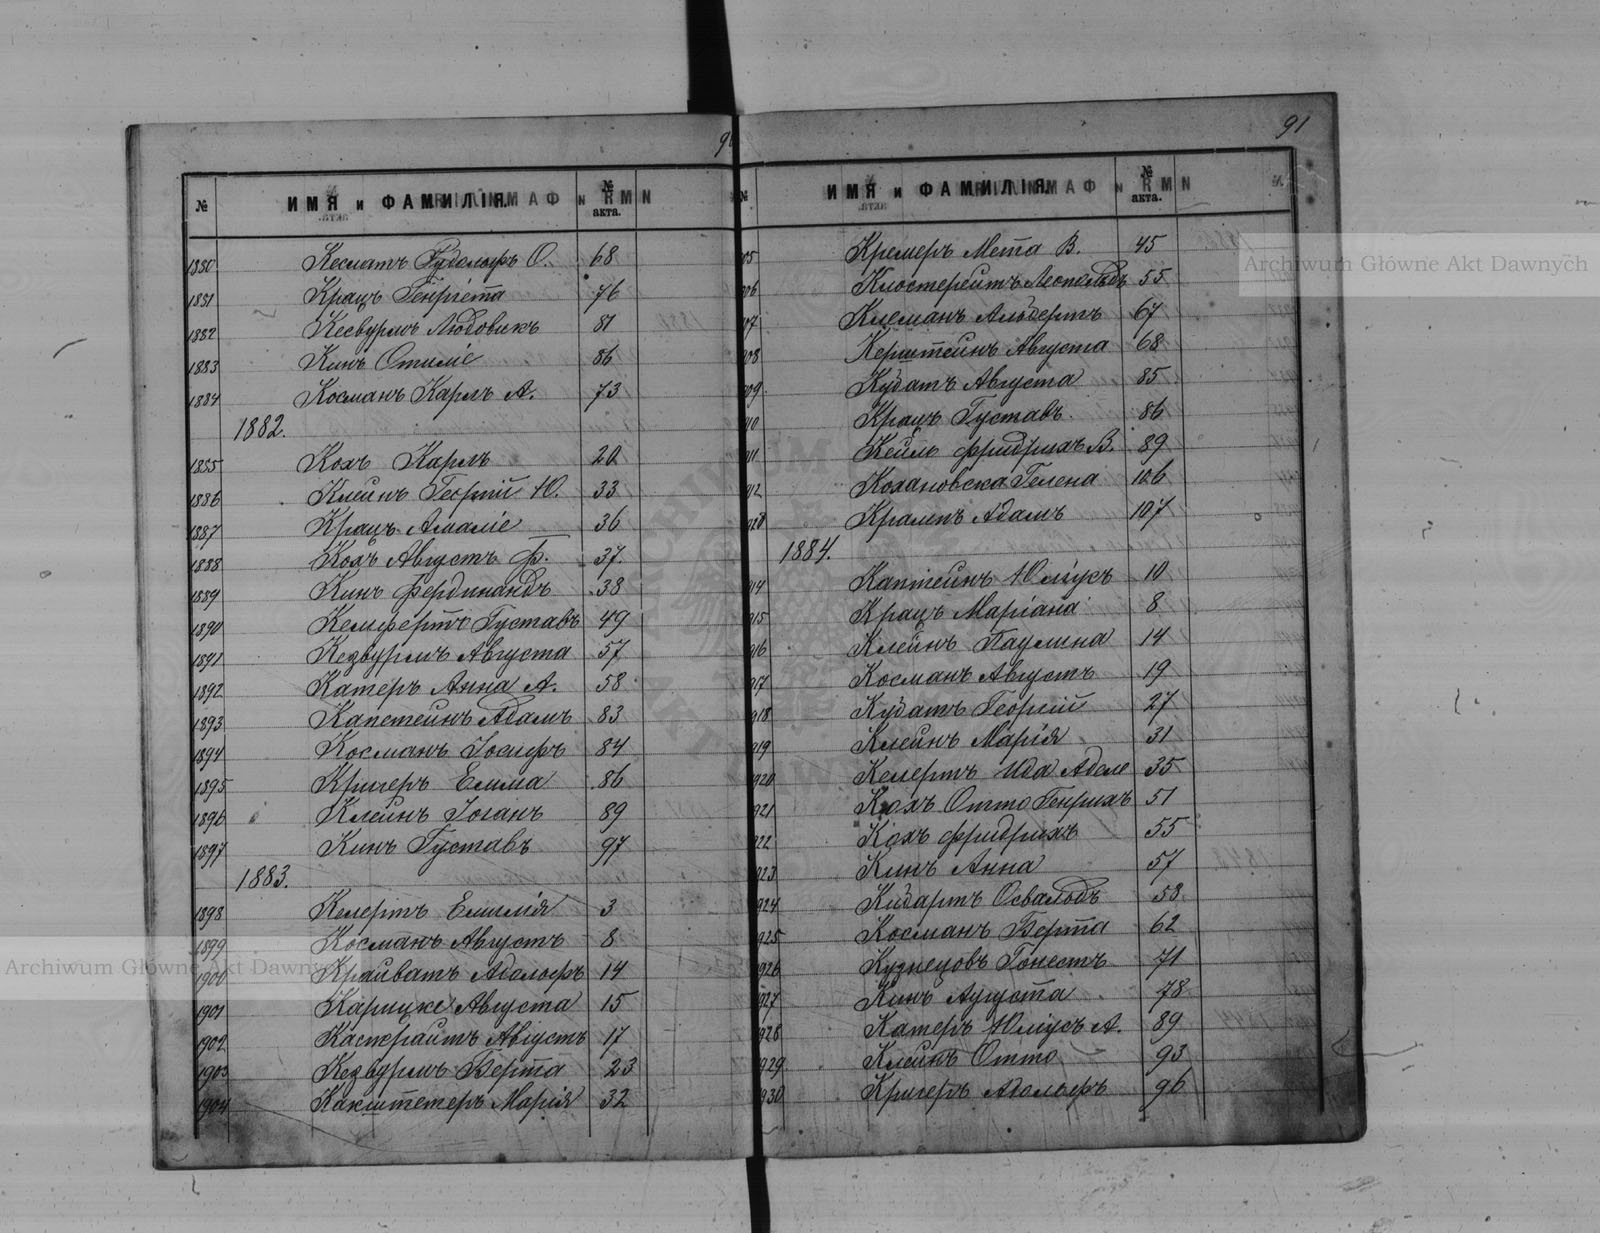 91
№ ИМЯ и ФАМИЛІЯ № акта.
1880 Кесматъ Рудольфъ О. 68
1881 Крацъ Генріета 76
1882 Кесвурмъ Людовикъ 81
1883 Кинъ Отиліе 86
1884 Косманъ Карлъ А. 73
1882.
1885 Кохъ Карлъ 20
1886 Клейнъ Георгій Ю. 33
1887 Крацъ Амаліе 36
1888 Кохъ Августъ Ф. 37.
1889 Кинъ Фердинандъ 38
1890 Кемфертъ Густавъ 49
1891 Кезвурмъ Августа 57
1892 Катеръ Анна А. 58
1893 Капстейнъ Адамъ 83
1894 Косманъ Іосифъ 84
1895 Кригеръ Емма 86
1896 Клейнъ Іоганъ 89
1897 Кинъ Густавъ 97
1883.
1898 Келертъ Емилія 3
1899 Косманъ Августъ 8
1900 Крайватъ Адольфъ 14
1901 Карицке Августа 15
1902 Касперайтъ Августъ 17
1903 Кезвурмъ Берта 23
1904 Какштетеръ Марія 32
№ ИМЯ и ФАМИЛІЯ № акта.
05 Кремеръ Мета В. 45
906 Клостерейтъ Леопольдъ 55
907 Клеманъ Альбертъ 67
908 Керштейнъ Августа 68
909 Кудатъ Августа 85
910 Крацъ Густавъ. 86
911 Кейль Фридрихъ В. 89
912 Кохановска Гелена 106
Крампъ Адамъ 107
1884.
914 Каптейнъ Юліусъ 10
915 Крацъ Маріана 8
916 Клейнъ Паулина 14
917 Косманъ Августъ 19
918 Кудатъ Георгій 27
919 Клейнъ Марія 31
920 Келертъ Ида Аделе 35
921 Кохъ Отто Генрихъ 51
922 Кохъ Фридрихъ 55
923 Кинъ Анна 57
924 Кидартъ Освальдъ 58
925 Косманъ Берта 62
926 Кузнецовъ 71
927 Кинъ Аугуста 78
928 Катеръ Юліусъ А. 89
929 Клейнъ Отто 93
930 Кригеръ Адольфъ 96
Archiwum Główne Akt Dawnych
Archiwum Główne Akt Dawnych